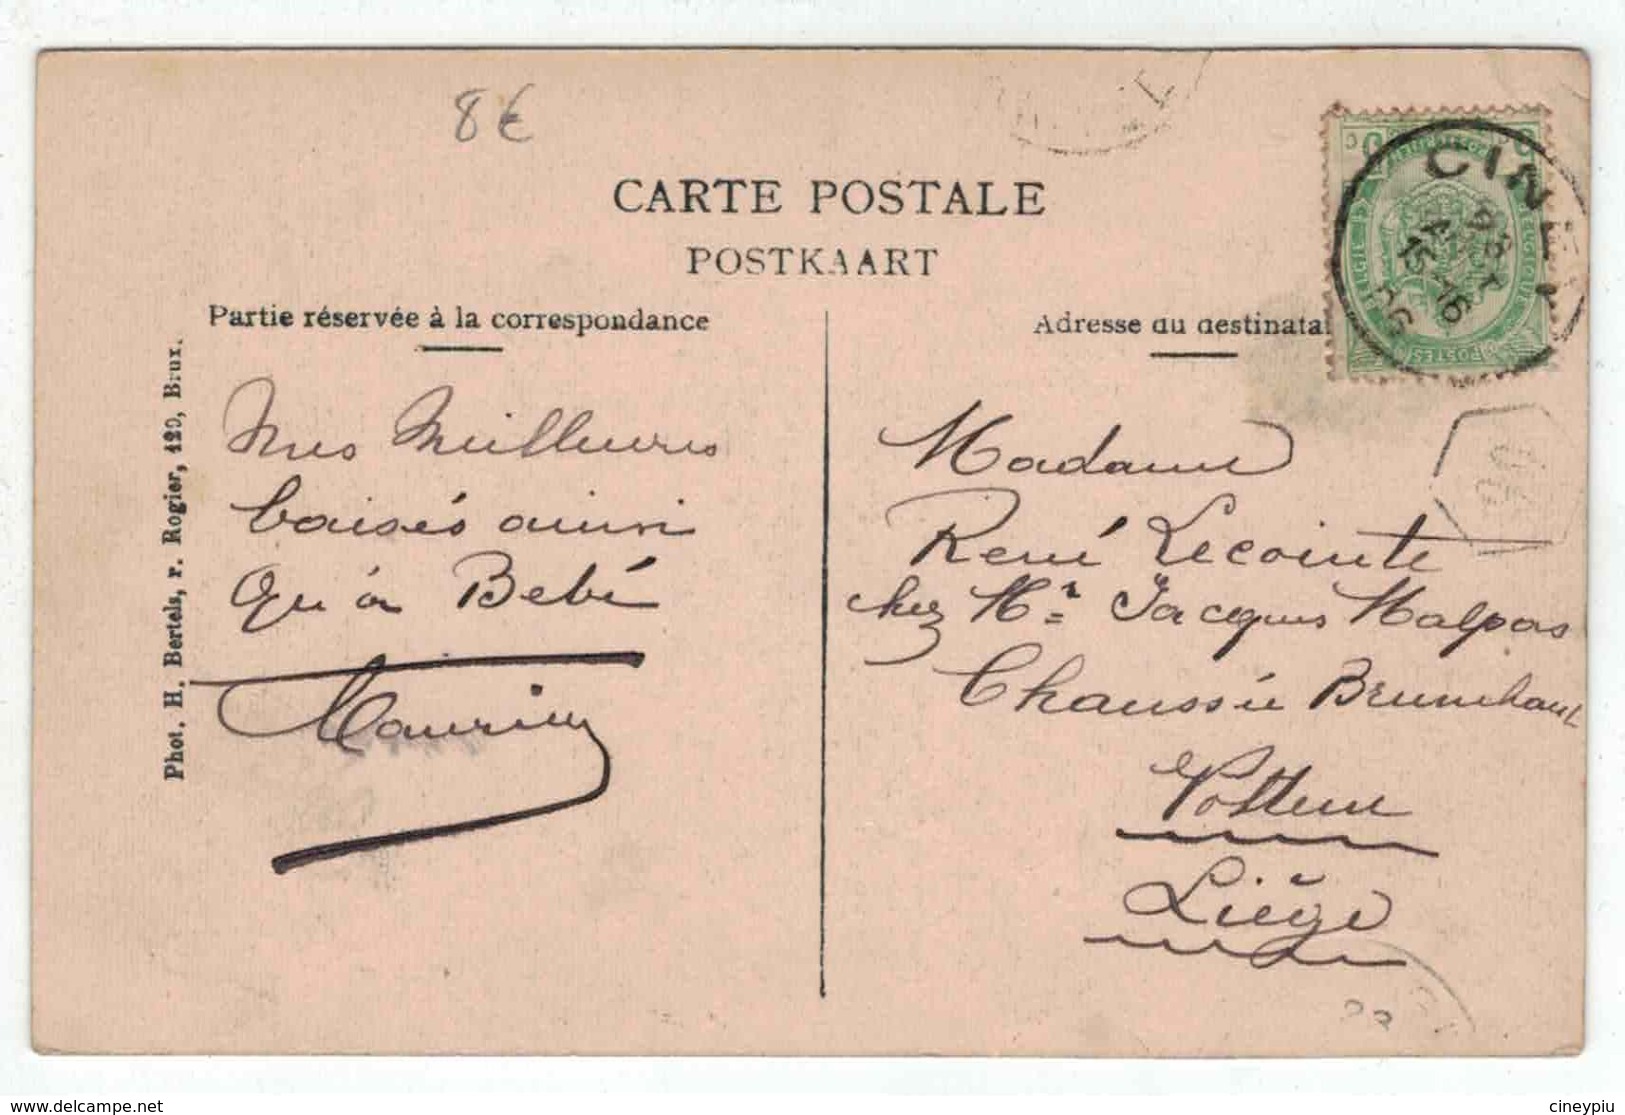 8€
CARTE POSTALE
POSTKAART
Partie réservée à la correspondance
Adresse du destinatai
Phot. H. Bertels, r. Rogier, 420, Brux.
CINEY
POSTES
Mes Meilleures
baisés ainsi
Qu'à Bebé
Maurice
Madame
René Lecointe
chez Mr Jacques Malpas
Chaussée Brunehaut
Vottem
Liège
www.delcampe.net
cineypiu